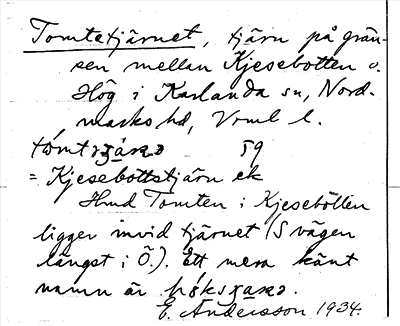 Tomtetjärnet, tjärn på grän-
sen mellan Kjesebotten o.
Hög i Karlanda sn, Nord-
marks hd, Vrml l.
59
= Kjesebottstjärn ek
Hmd Tomten i Kjesebotten
ligger invid tjärnet (S vägen
längst i Ö.). Ett mera känt
namn är
E. Andersson 1934.